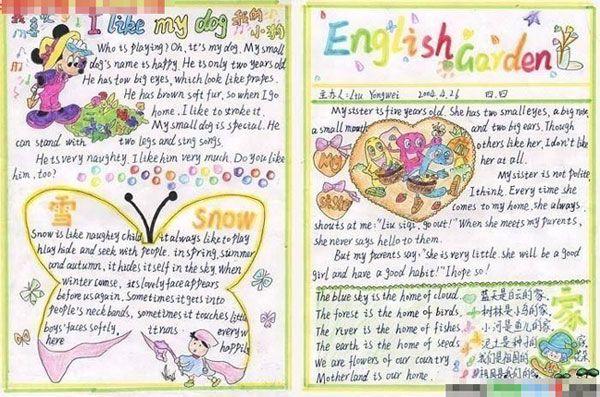 I like my dog
Who is playing? Oh, it's my dog. My small
dog's name is happy. He is only two years old
He has tow big eyes, which look like prapes.
He has brown soft fur, so when I go
home. I like to stroke it.
My small dog is special. He
can stand with two legs and sing songs.
He is very naughty. I like him very much. Do you like
him, too?
雪
Snow
Snow is like naughty child, it always like to play
hlay hide and seek with people. in spring, summer
and autumn, it hides itself in the sky. When
winter comse, its lovely face appears
before us again. Sometimes it gets into
people's neck bands, sometimes it touches little
boys' faces softly, it trans everyw
here happily
English Garden
主办人: Liu Yongwei 2004.4.26 四.四
My sister is five years old. She has two small eyes, a big nose,
a small mouth and two big ears. Though
others like her, I don't like
her at all.
Me
My sister is not polite,
I think. Every time she
comes to my home, she always
shouts at me: "Liu siqi, go out!" When she meets my parents,
she never says hello to them.
But my parents say: "she is very little. she will be a good
girl and have a good habit!" I hope so!
The blue sky is the home of cloud. 蓝天是白云的家.
The forest is the home of birds. 树林是小鸟的家.
The river is the home of fishes. 小河是鱼儿的家.
The earth is the home of seeds. 泥土是种子的家.
We are flowers of our country. 我们是祖国的花朵.
Motherland is our home. 祖国是我们的家.
家